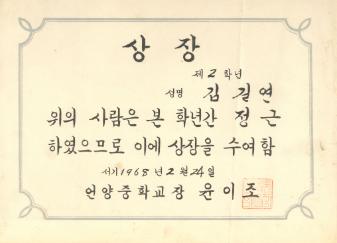 상장
제 2 학년
성명 김길연
위의 사람은 본 학년간 정근
하였으므로 이에 상장을 수여함
서기 1968 년 2 월 24 일
언양중학교장 윤이조